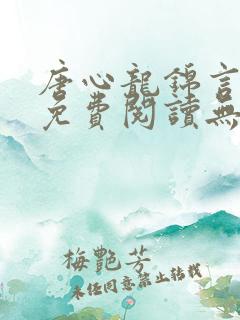 唐心龍錦言
免費閱讀無
梅艷芳
未經同意禁止轉載